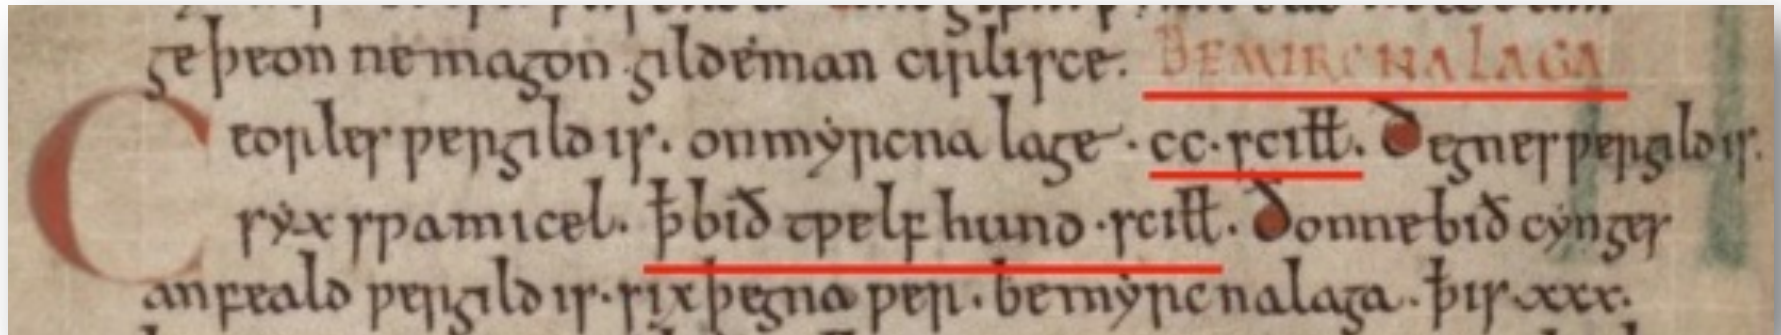 geþeon ne magon gilde man cirlisce. BE MIRCNA LAGA
Ceorles ƿergild is. on myrcna lage. cc. scitt. Ðegnes ƿergild is.
syx sƿa micel. ꝥ bið tƿelf hund. scitt. Ðonne bið cynges
anfeald ƿergild is. six þegna ƿer. be myrcna laga. ꝥ is. xxx.